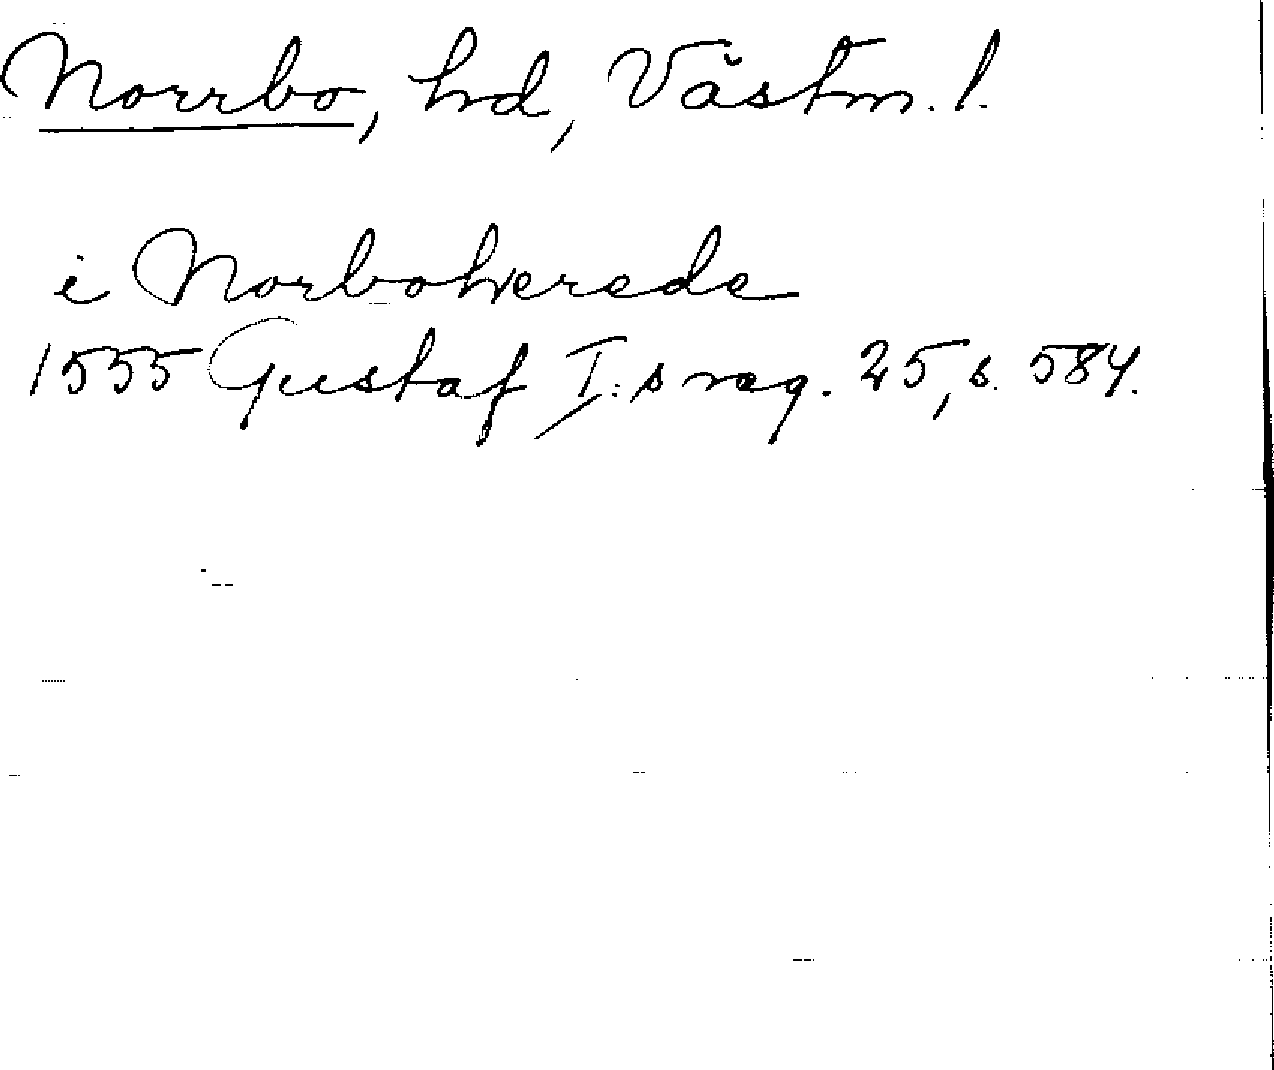 Norrbo, hd, Västm. l.
i Norbohærede
1555 Gustaf I:s reg. 25, s. 584.